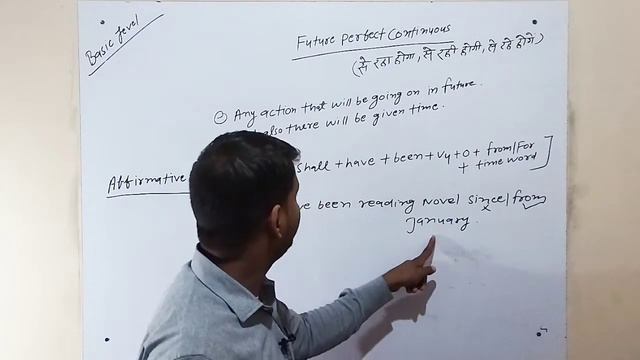 Basic level
Future Perfect Continuous
(से रहा होगा, से रही होगी, से रहे होंगे)
Any action that will be going on in future.
also there will be given time.
Affirmative
shall + have + been + V4 + O + from/For
+ time word
been reading Novel since/from
January.